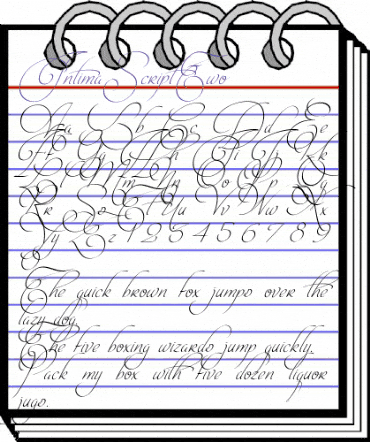 Intima Script Two
Aa Bb Cc Dd Ee
Ff Gg Hh Ii Jj Kk
Ll Mm Nn Oo Pp Qq
Rr Ss Tt Uu Vv Ww Xx
Yy Zz 1 2 3 4 5 6 7 8 9
The quick brown fox jumps over the
lazy dog
The five boxing wizards jump quickly.
Pack my box with five dozen liquor
jugs.